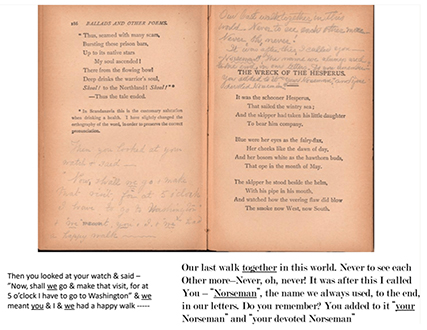 286 BALLADS AND OTHER POEMS.
"Thus, seamed with many scars,
Bursting these prison bars,
Up to its native stars
My soul ascended!
There from the flowing bowl
Deep drinks the warrior's soul,
Skoal! to the Northland! Skoal!" *
—Thus the tale ended.
* In Scandinavia this is the customary salutation
when drinking a health. I have slightly changed the
orthography of the word, in order to preserve the correct
pronunciation.
Then you looked at your
watch & said –
"Now, shall we go & make
that visit, for at 5 o'clock
I have to go to Washington"
& we meant you & I & we had
happy walk
Our last walk together in this
world – Never to see each other more
Never, oh, never!
It was after this I called you –
"Norseman", the name we always used,
to the end, in our letters. Do you remember?
You added to it "your Norseman" and "your
devoted Norseman"
THE WRECK OF THE HESPERUS.
It was the schooner Hesperus,
That sailed the wintry sea;
And the skipper had taken his little daughter
To bear him company.
Blue were her eyes as the fairy-flax,
Her cheeks like the dawn of day,
And her bosom white as the hawthorn buds,
That ope in the month of May.
The skipper he stood beside the helm,
With his pipe in his mouth,
And watched how the veering flaw did blow
The smoke now West, now South.
Then you looked at your watch & said –
"Now, shall we go & make that visit, for at
5 o'clock I have to go to Washington" & we
meant you & I & we had a happy walk -----
Our last walk together in this world. Never to see each
Other more–Never, oh, never! It was after this I called
You – "Norseman", the name we always used, to the end,
in our letters. Do you remember? You added to it "your
Norseman" and "your devoted Norseman"